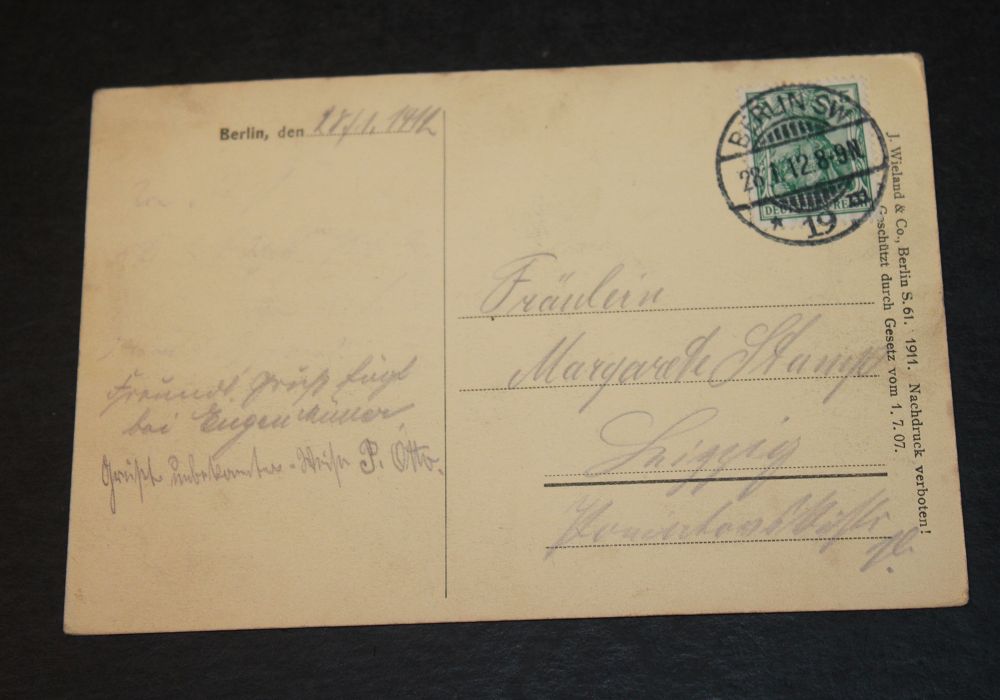 Berlin, den 28/1. 1912
Freundl. Gruß fügt
bei Eugen
Grüßt unbekannter-Weise P. Otto.
BERLIN SW
28.1.12.8-9N.
* 19
DEUTSCHES REICH
Fräulein
Margarete Stamp
Leipzig
J. Wieland & Co., Berlin S. 61. 1911. Nachdruck verboten!
Geschützt durch Gesetz vom 1. 7. 07.